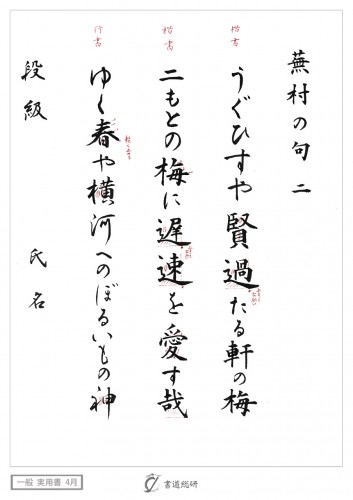 蕪村の句 二
楷書
うぐひすや賢過たる軒の梅
楷書
二もとの梅に遅速を愛す哉
行書
ゆく春や横河へのぼるいもの神
段級 氏名
一般 実用書 4月
書道総研